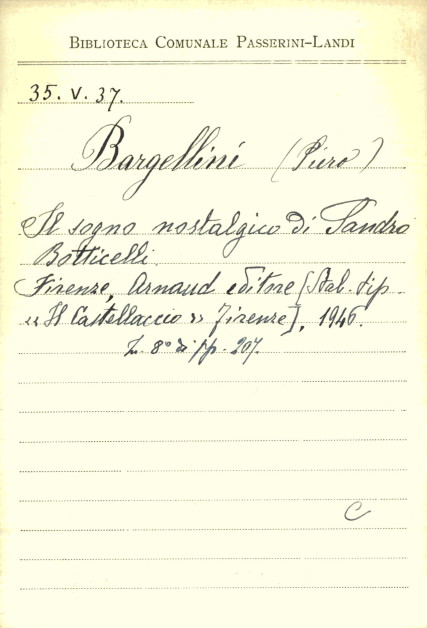 BIBLIOTECA COMUNALE PASSERINI-LANDI
35. V. 37.
Bargellini (Piero)
Il sogno nostalgico di Sandro
Botticelli.
Firenze, Arnaud editore [Stab. tip.
"Il Castellaccio" Firenze], 1946.
In 8° di pp. 207.
C